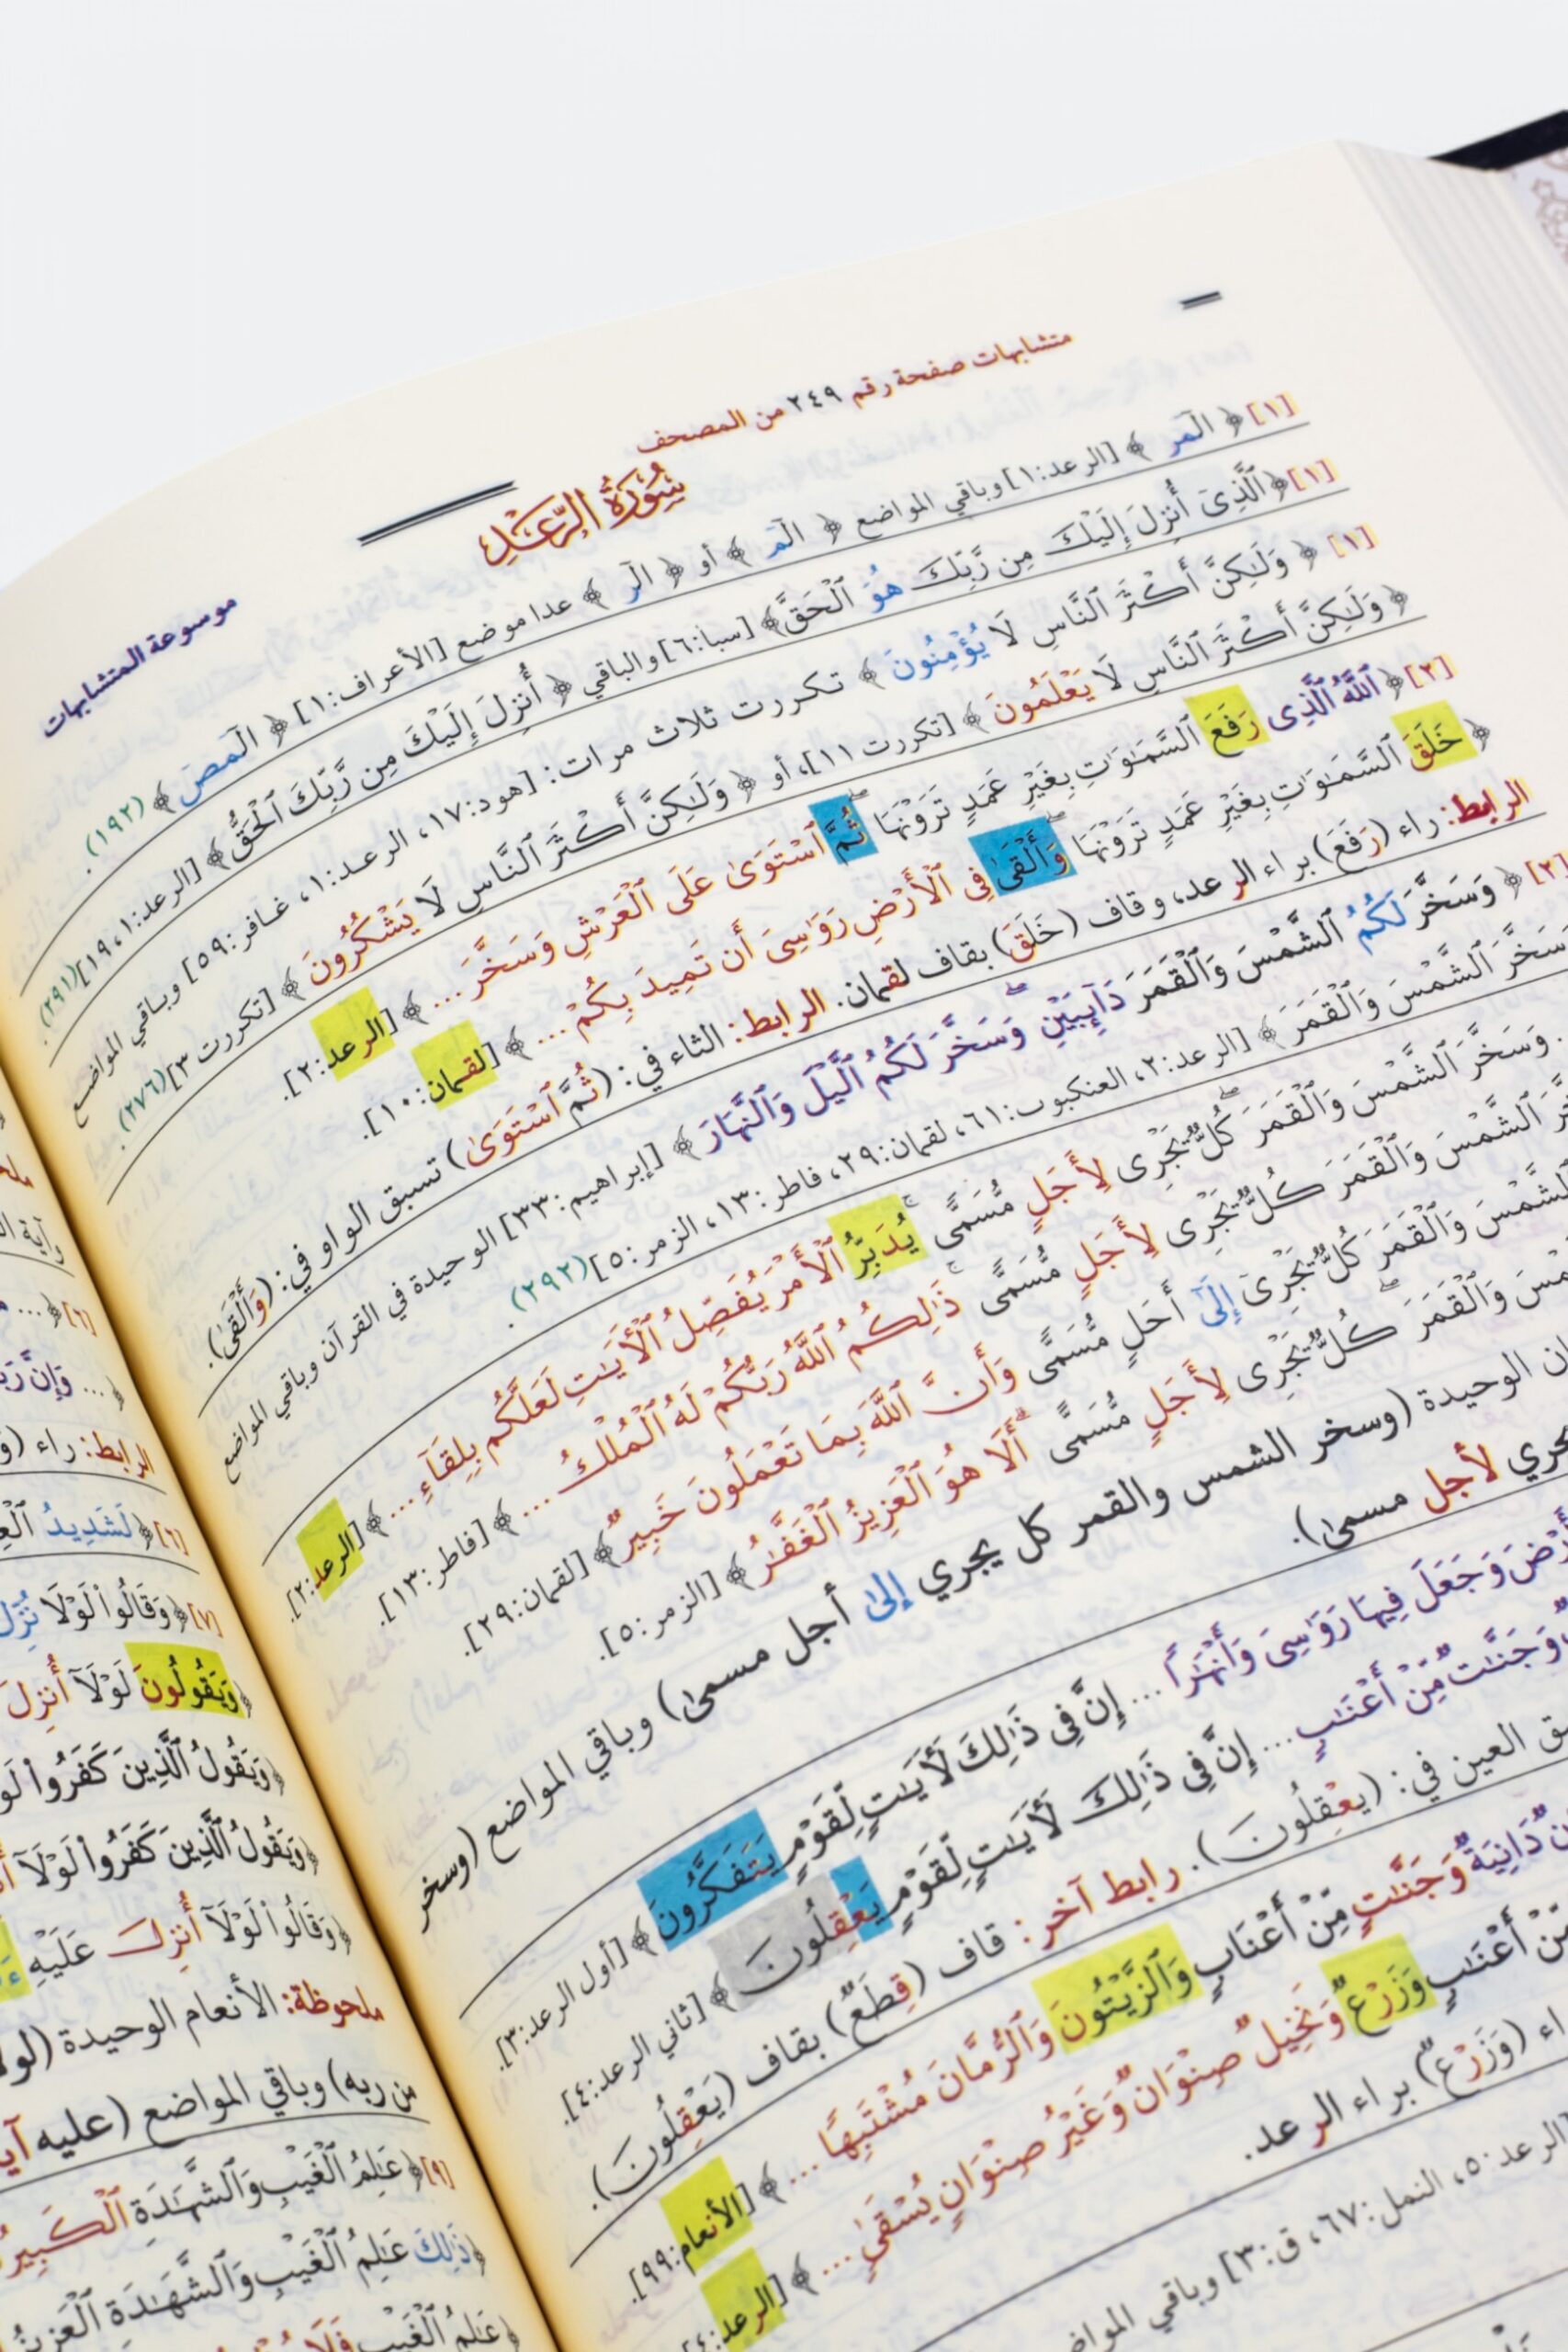 متشابهات صفحة رقم ٢٤٩ من المصحف
سُورَةُ الرَّعْدِ
موسوعة المتشابهات
[١] ﴿ الٓمٓر ﴾ [الرعد:١] وباقي المواضع ﴿ الٓمٓ ﴾ أو ﴿ الٓر ﴾ عدا موضع [الأعراف:١] ﴿ الٓمٓصٓ ﴾ (١٩٢).
[١] ﴿ ٱلَّذِىٓ أُنزِلَ إِلَيْكَ مِن رَّبِّكَ هُوَ ٱلْحَقَّ ﴾ [سبأ:٦] والباقي ﴿ أُنزِلَ إِلَيْكَ مِن رَّبِّكَ ٱلْحَقُّ ﴾ [الرعد:١، ١٩] (٢٩١).
[١] ﴿ وَلَٰكِنَّ أَكْثَرَ ٱلنَّاسِ لَا يُؤْمِنُونَ ﴾ تكررت ثلاث مرات: [هود:١٧، الرعد:١، غافر:٥٩] وباقي المواضع
﴿ وَلَٰكِنَّ أَكْثَرَ ٱلنَّاسِ لَا يَعْلَمُونَ ﴾ [تكررت ١١]، أو ﴿ وَلَٰكِنَّ أَكْثَرَ ٱلنَّاسِ لَا يَشْكُرُونَ ﴾ [تكررت ٣] (٢٧٦).
[٢] ﴿ ٱللَّهُ ٱلَّذِى رَفَعَ ٱلسَّمَٰوَٰتِ بِغَيْرِ عَمَدٍ تَرَوْنَهَا ۖ ثُمَّ ٱسْتَوَىٰ عَلَى ٱلْعَرْشِ وَسَخَّرَ ... ﴾ [الرعد:٢].
﴿ خَلَقَ ٱلسَّمَٰوَٰتِ بِغَيْرِ عَمَدٍ تَرَوْنَهَا ۖ وَأَلْقَىٰ فِى ٱلْأَرْضِ رَوَٰسِىَ أَن تَمِيدَ بِكُمْ ... ﴾ [لقمان:١٠].
الرابط: راء (رَفَعَ) براء الرعد، وقاف (خَلَقَ) بقاف لقمان. الرابط: الثاء في: (ثُمَّ ٱسْتَوَىٰ) تسبق الواو في: (وَأَلْقَىٰ).
[٢] ﴿ وَسَخَّرَ لَكُمُ ٱلشَّمْسَ وَٱلْقَمَرَ دَآئِبَيْنِ ۖ وَسَخَّرَ لَكُمُ ٱلَّيْلَ وَٱلنَّهَارَ ﴾ [إبراهيم:٣٣] الوحيدة في القرآن وباقي المواضع
وَسَخَّرَ ٱلشَّمْسَ وَٱلْقَمَرَ ﴾ [الرعد:٢، العنكبوت:٦١، لقمان:٢٩، فاطر:١٣، الزمر:٥] (٢٩٢).
وَسَخَّرَ ٱلشَّمْسَ وَٱلْقَمَرَ ۖ كُلٌّ يَجْرِى لِأَجَلٍ مُّسَمًّى ۚ يُدَبِّرُ ٱلْأَمْرَ يُفَصِّلُ ٱلْءَايَٰتِ لَعَلَّكُم بِلِقَآءِ ... ﴾ [الرعد:٢].
ٱلشَّمْسَ وَٱلْقَمَرَ كُلٌّ يَجْرِى لِأَجَلٍ مُّسَمًّى ۚ ذَٰلِكُمُ ٱللَّهُ رَبُّكُمْ لَهُ ٱلْمُلْكُ ... ﴾ [فاطر:١٣].
ٱلشَّمْسَ وَٱلْقَمَرَ كُلٌّ يَجْرِىٓ إِلَىٰٓ أَجَلٍ مُّسَمًّى وَأَنَّ ٱللَّهَ بِمَا تَعْمَلُونَ خَبِيرٌ ﴾ [لقمان:٢٩].
وَٱلْقَمَرَ ۖ كُلٌّ يَجْرِى لِأَجَلٍ مُّسَمًّى ۗ أَلَا هُوَ ٱلْعَزِيزُ ٱلْغَفَّٰرُ ﴾ [الزمر:٥].
الوحيدة (وسخر الشمس والقمر كل يجري إلى أجل مسمى) وباقي المواضع (وسخر
يجري لأجل مسمى).
وَجَعَلَ فِيهَا رَوَٰسِىَ وَأَنْهَٰرًا ... إِنَّ فِى ذَٰلِكَ لَءَايَٰتٍ لِّقَوْمٍ يَتَفَكَّرُونَ ﴾ [أول الرعد:٣].
وَجَنَّٰتٌ مِّنْ أَعْنَٰبٍ ... إِنَّ فِى ذَٰلِكَ لَءَايَٰتٍ لِّقَوْمٍ يَعْقِلُونَ ﴾ [ثاني الرعد:٤].
العين في: (يَعْقِلُونَ). رابط آخر: قاف (قِطَعٌ) بقاف (يَعْقِلُونَ).
دَانِيَةٌ وَجَنَّٰتٍ مِّنْ أَعْنَابٍ وَٱلزَّيْتُونَ وَٱلرُّمَّانَ مُشْتَبِهًا ... ﴾ [الأنعام:٩٩].
مِّنْ أَعْنَٰبٍ وَزَرْعٌ وَنَخِيلٌ صِنْوَانٌ وَغَيْرُ صِنْوَانٍ يُسْقَىٰ ... ﴾ [الرعد:٤].
(وَزَرْعٌ) براء الرعد.
الرعد:٥، النمل:٦٧، ق:٣] وباقي
﴿ ... وَإِنَّ
الرابط: راء
[٦] ﴿ لَشَدِيدُ
[٧] ﴿ وَقَالُوا۟ لَوْلَا نُزِّلَ
﴿ وَيَقُولُونَ لَوْلَآ أُنزِلَ
﴿ وَيَقُولُ ٱلَّذِينَ كَفَرُوا۟
﴿ وَيَقُولُ ٱلَّذِينَ كَفَرُوا۟ لَوْلَآ
﴿ وَقَالُوا۟ لَوْلَآ أُنزِلَ عَلَيْهِ
ملحوظة: الأنعام الوحيدة
من ربه) وباقي المواضع (عليه
[٩] ﴿ عَٰلِمُ ٱلْغَيْبِ وَٱلشَّهَٰدَةِ ٱلْكَبِيرُ
﴿ ذَٰلِكَ عَٰلِمُ ٱلْغَيْبِ وَٱلشَّهَٰدَةِ
﴿ عَٰلِمُ ٱلْغَيْبِ